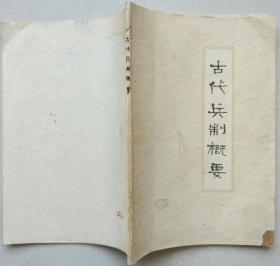 古代兵制概要
古代兵制概要